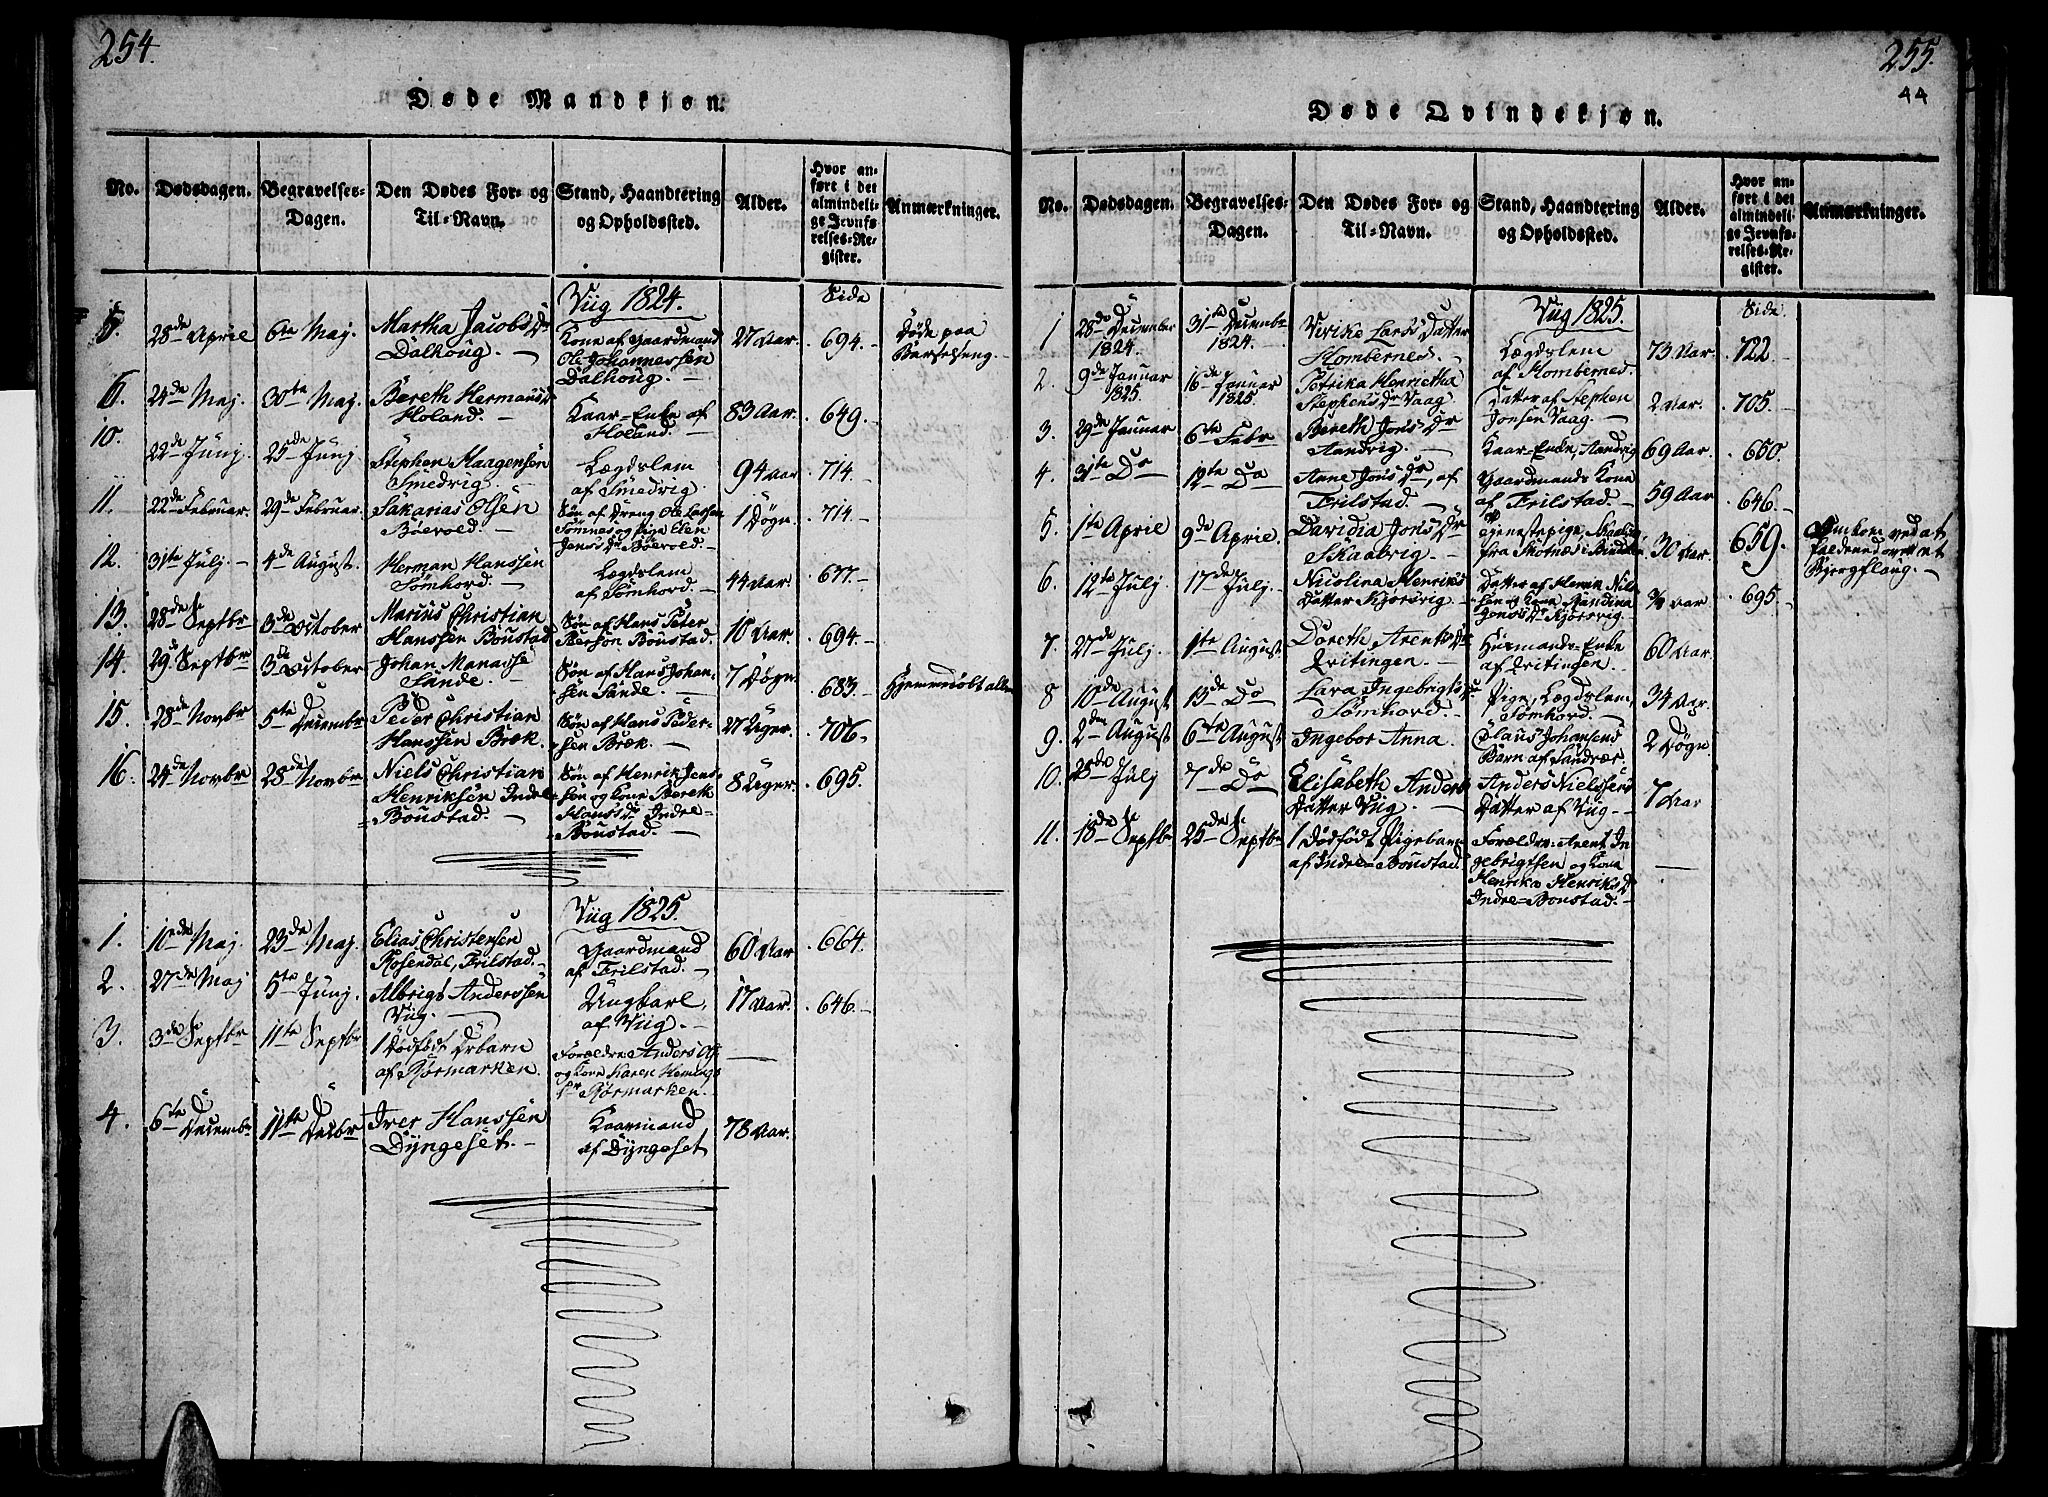 254.
Døde Mandkjøn.
No.
Dødsdagen.
Begravelses-
Dagen.
Den Dødes For- og
Til-Navn.
Stand, Haandtering
og Opholdssted.
Alder.
Hvor an-
ført i det
almindeli-
ge Jevnfø-
relses-Re-
gister.
Anmærkninger.
Viig 1824.
Side
5. 28de April 6te Maj. Martha Jacobs Dr
Dalhoug. Kone af Gaardmand
Ole Johannessen
Dalhoug. 27 Aar. 694. Døde paa
Barselseng.
6. 24de Maj. 30te Maj. Bereth Hermans Dr
Holand. Kaar-Enke af
Holand. 83 Aar. 649.
10. 22de Junj. 25de Junj Stephen Haagensen
Smedvig. Lægdslem
af Smedvig. 94 Aar 714.
11. 22de Februar. 29de Februar. Sakarias Olsen
Bøevold. Søn af Dreng Ole Larsen
Sømnes og Pige Elen
Jens Dr Bøevold. 1 Døgn. 714.
12. 31te Julj. 4de August. Herman Hanssen
Sømhord. Lægdslem
af Sømhord. 44 Aar. 677.
13. 28de Septbr 3de October Marius Christian
Hanssen Boustad Søn af Hans Peter
Bersen Boustad. 10 Aar. 694.
14. 29de Septbr 3de October Johan Manasse
Sande. Søn af Hans Johan-
sen Sande. 7 Døgn 683. Hjemmedøbt
15. 28de Novbr 5te Decembr Peder Christian
Hanssen Bræk. Søn af Hans Peder-
sen Bræk. 27 Uger. 706.
16. 24de Novbr 28de Novbr Niels Christian
Henriksen Indre-
Boustad. Søn af Henrik Jens-
sen og Kone Bereth
Hans Dr Indre-
Boustad. 8 Uger. 695.
Viig 1825.
1. 10de Maj. 23de Maj. Elias Christensen
Rosendal, Frilstad. Gaardmand
af Frilstad. 60 Aar 664.
2. 27de Maj 5te Junj. Albrigt Anderssen
Viig. Ungkarl,
af Viig. 17 Aar. 646.
3. 3de Septbr 11te Septbr 1 Dødfødt Drbarn
af Rørmarken. Forældre Anders
og Kone Karen Hemings
Dr Rørmarken.
4. 6te Decembr 11te Decbr Iver Hanssen
Dyngeset. Kaarmand
af Dyngeset 78 Aar.
255.
44
Døde Qvindekjøn.
No.
Dødsdagen.
Begravelses-
Dagen.
Den Dødes For- og
Til-Navn.
Stand, Haandtering
og Opholdssted.
Alder.
Hvor an-
ført i det
almindeli-
ge Jevnfø-
relses-Re-
gister.
Anmærkninger.
Viig 1825.
Side.
1 28de December
1824. 31te Decembr
1824. Virike Lars Datter
Hombernes. Lægdslem
af Hombernes. 73 Aar. 722
2. 9de Januar
1825. 16de Januar
1825. Petrika Henrietha
Stephens Dr Vaag. Datter af Stephen
Jonsen Vaag. 2 Aar. 705.
3. 29de Januar 6te Febr Bereth Jons Dr
Aandvig. Kaar-Enke, Aandvig 69 Aar. 650
4. 31te Do 12te Do Anne Jons Dr, af
Frilstad. Gaardmands Kone
af Frilstad. 59 Aar 646.
5. 1te April 9de April. Davidia Jons Dr
Skaalvig. Tjenestepige, Skaalvig
fra Skotnes i Bindalen 30 Aar. 659. Omkom ved at
falde ned over et
Bjergflaug.
6. 12te Julj 17de Julj. Nicolina Henriks
Datter Kjørsvig. Datter af Henrik Niel-
sen og Kone Randina
Jens Dr Kjørsvig. 3/4 Aar 695.
7. 27de Julj. 1te August Doreth Arents Dr
Qvitingen. Huusmands-Enke
af Qvitingen. 60 Aar.
8 10de August 13de Do Lara Ingebrigts Dr
Sømhord. Pige, Lægdslem,
Sømhord. 34 Aar.
9. 2den August 6te August Ingebor Anna. Claus Johansens
Barn af Sandvær. 2 Døgn
10. 28de Julj 7de Do Elisabeth Anders
Datter Viig. Anders Nielssens
Datter af Viig 7 Aar
11. 18de Septbr 25de Septbr 1 Dødfødt Pigebarn
af Indre-Boustad. Forældre: Arent In-
gebrigtsen og Kone
Henrika Henriks Dr
Indre-Boustad.